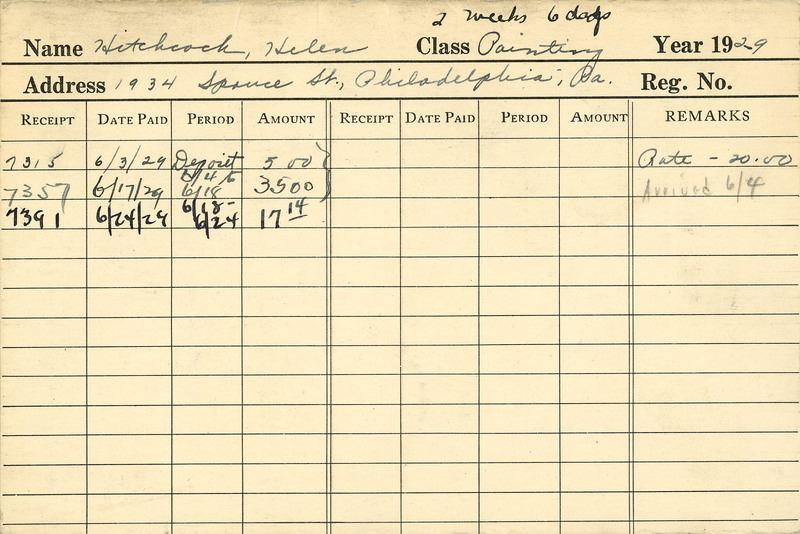 2 weeks 6 days
Name Hitchcock, Helen Class Painting Year 1929
Address 1934 Spruce St., Philadelphia, Pa. Reg. No.
RECEIPT DATE PAID PERIOD AMOUNT RECEIPT DATE PAID PERIOD AMOUNT REMARKS
7315 6/3/29 Deposit 5 00 Rate - 20.00
7357 6/17/29 6/4 to 6/18 35 00 Arrived 6/4
7391 6/24/29 6/18 - 6/24 17 14